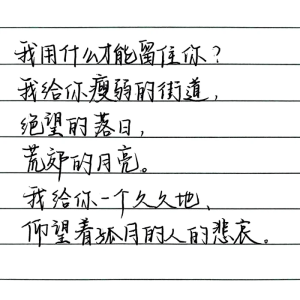 我用什么才能留住你？
我给你瘦弱的街道，
绝望的落日，
荒郊的月亮。
我给你一个久久地、
仰望着孤月的人的悲哀。